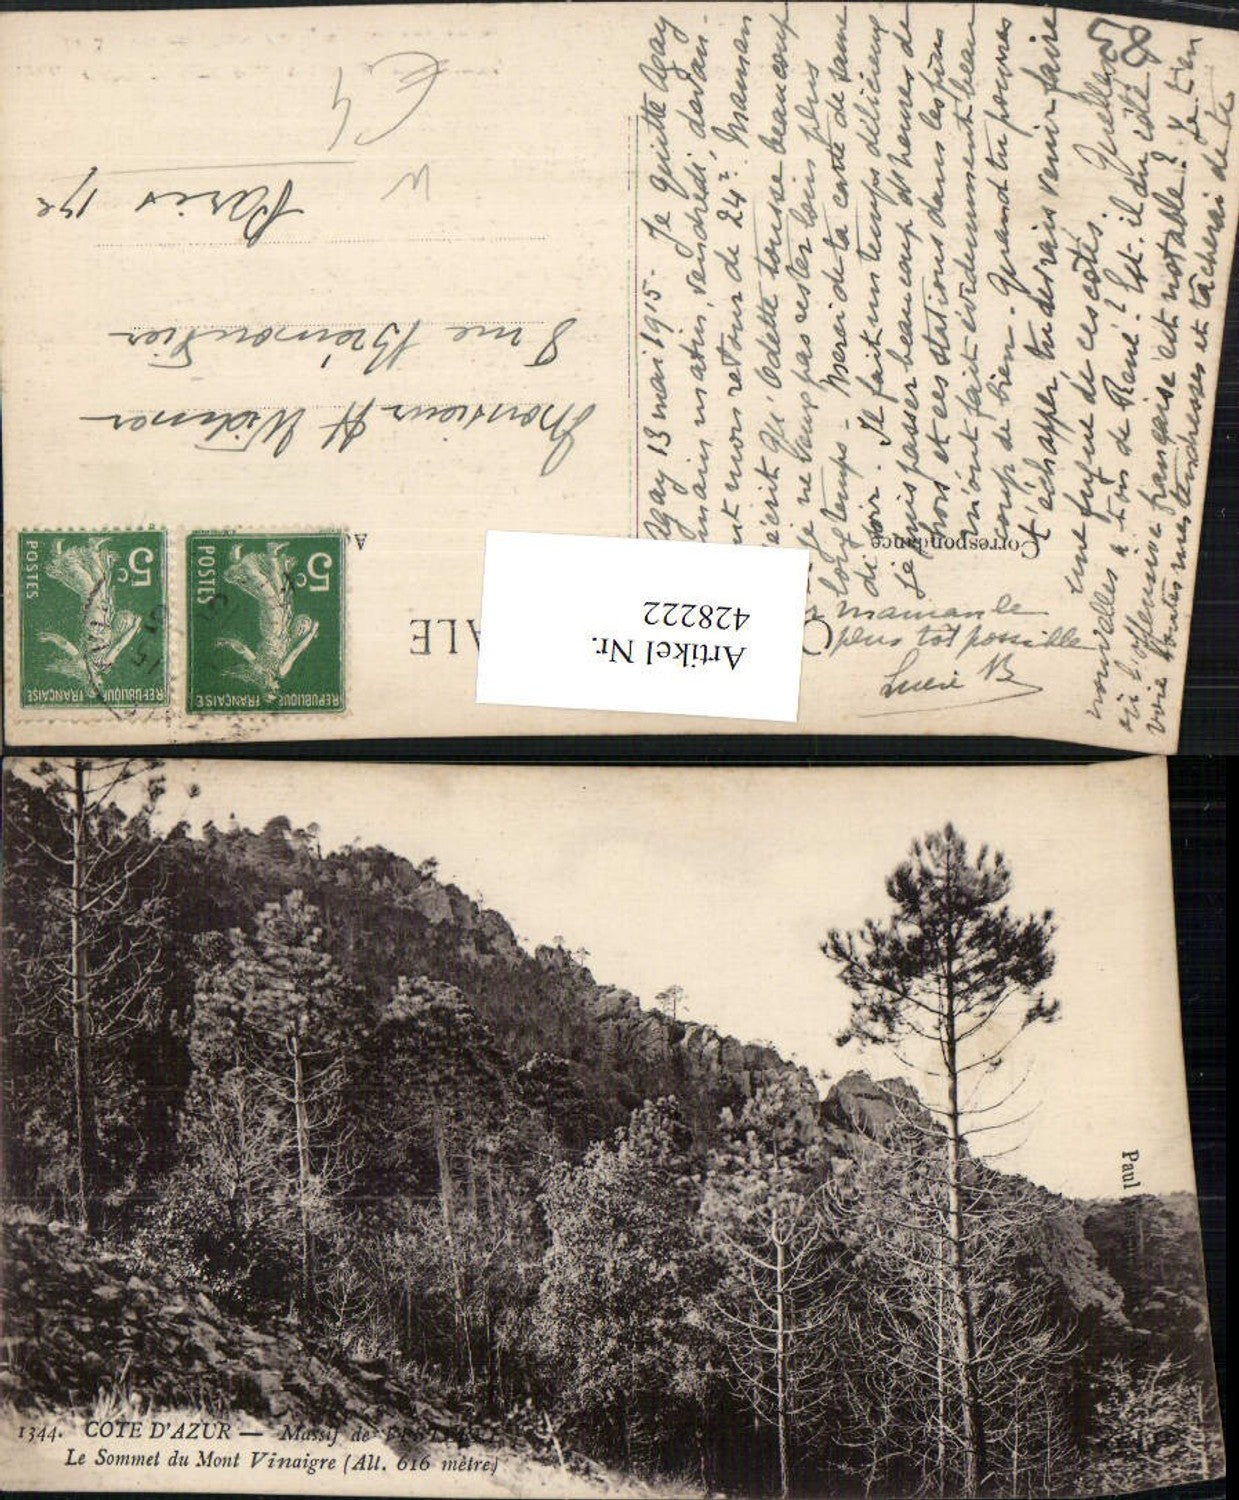 Agay 13 mai 1915 - Je quitte Agay
main matin, vendredi, devan-
nt mon retour de 24h. Maman
écrit qu'Odette tousse beaucoup
je ne peux pas rester bien plus
longtemps - Merci de ta carte de
dire. Il fait un temps délicieux
Je puis passer beaucoup d'heures de
hors et ces stations dans les pins
m'ont fait évidemment beau
coup de bien. Quand tu pourras
t'échapper, tu devrais venir faire
une fugue de ces côtés. Quelles
nouvelles as-tu de René? Est-il du côté
où l'offensive française est notable?
tendresses et tâcherai de te
voir
maman le
plus tôt possible
Lucie B
Correspondance
Monsieur H Widmer
5 rue Brémontier
Paris 17e
W
€ 4
ALE
Artikel Nr.
428222
5c
POSTES
REPUBLIQUE FRANÇAISE
5c
POSTES
REPUBLIQUE FRANÇAISE
Paul
1344. COTE D'AZUR — Massif de l'ESTEREL
Le Sommet du Mont Vinaigre (Alt. 616 mètre)